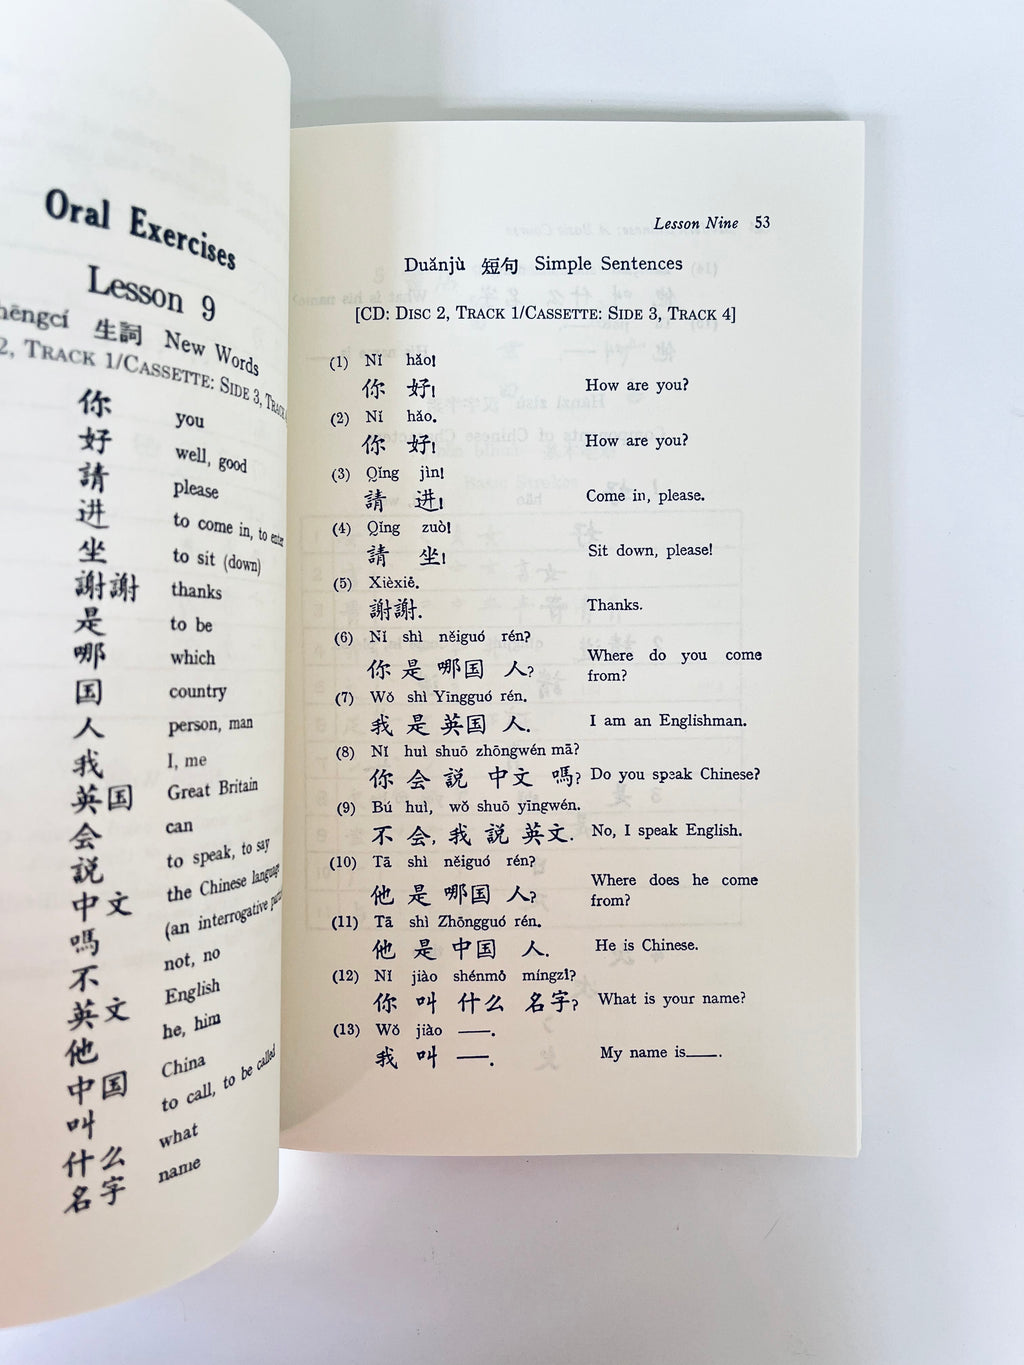 Oral Exercises
Lesson 9
生詞 New Words
2, TRACK 1/CASSETTE: SIDE 3,
你 you
好 well, good
請 please
进 to come in, to enter
坐 to sit (down)
謝謝 thanks
是 to be
哪 which
国 country
人 person, man
我 I, me
英国 Great Britain
会 can
説 to speak, to say
中文 the Chinese language
嗎 (an interrogative
不 not, no
英文 English
他 he, him
中国 China
叫 to call, to be called
什么 what
名字 name
Lesson Nine 53
Duǎnjù 短句 Simple Sentences
[CD: DISC 2, TRACK 1/CASSETTE: SIDE 3, TRACK 4]
(1) Nǐ hǎo!
你 好! How are you?
(2) Nǐ hǎo.
你 好! How are you?
(3) Qǐng jìn!
請 进! Come in, please.
(4) Qǐng zuò!
請 坐! Sit down, please!
(5) Xièxie.
謝謝. Thanks.
(6) Nǐ shì něiguó rén?
你 是 哪国 人? Where do you come
from?
(7) Wǒ shì Yīngguó rén.
我 是 英国 人. I am an Englishman.
(8) Nǐ huì shuō zhōngwén mā?
你 会 説 中文 嗎? Do you speak Chinese?
(9) Bú huì, wǒ shuō yīngwén.
不 会, 我 説 英文. No, I speak English.
(10) Tā shì něiguó rén?
他 是 哪国 人? Where does he come
from?
(11) Tā shì Zhōngguó rén.
他 是 中国 人. He is Chinese.
(12) Nǐ jiào shénmo míngzi?
你 叫 什么 名字? What is your name?
(13) Wǒ jiào ——.
我 叫 ——. My name is——.